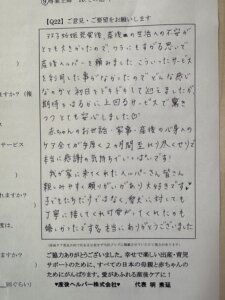 【Q22】ご意見・ご要望をお願いします
双子妊娠発覚後、産後の生活への不安が
とても大きかったので、ワラにもすがる思いで
産後ヘルパーを頼みました。こういったサービス
を利用した事がなかったのでどんな感じ
なのかと初日とてもドキドキして迎えましたが、
期待をはるかに上回るサービスで驚き
つつとても安心しました
赤ちゃんのお世話・家事・産後の心身への
ケア全てが手厚く2ヶ月間至れり尽くせりで
本当に感謝の気持ちでいっぱいです!
我が家に来てくれたヘルパーさん皆さん
親しみやすく頼りがいがあり大好きです
とても丁寧に接してくれ可愛がってくれたのも
嬉しかったです 本当にありがとうございました
ご協力ありがとうございました。幸せで楽しい出産・育児
サポートのために、すべての日本の母親と赤ちゃんの
ためにがんばります。愛があふれる産後ケアに!
♥産後ヘルパー株式会社♥ 代表 明 素延
ますか?(権
サービス
れますか?
ますか?